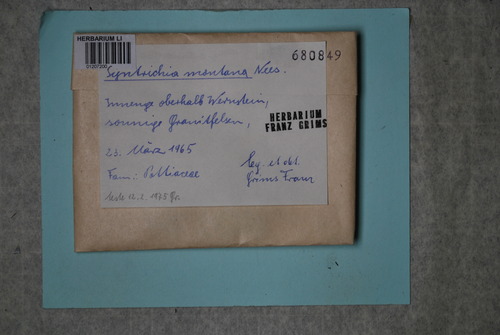 HERBARIUM LI
01207200
680849
Syntrichia montana Nees.
Innenge oberhalb Wernstein,
sonnige Granitfelsen,
HERBARIUM
FRANZ GRIMS
23. März 1965
Fam.: Pottiaceae
leg. et det.
Grims Franz
12.2.1975 Gr.